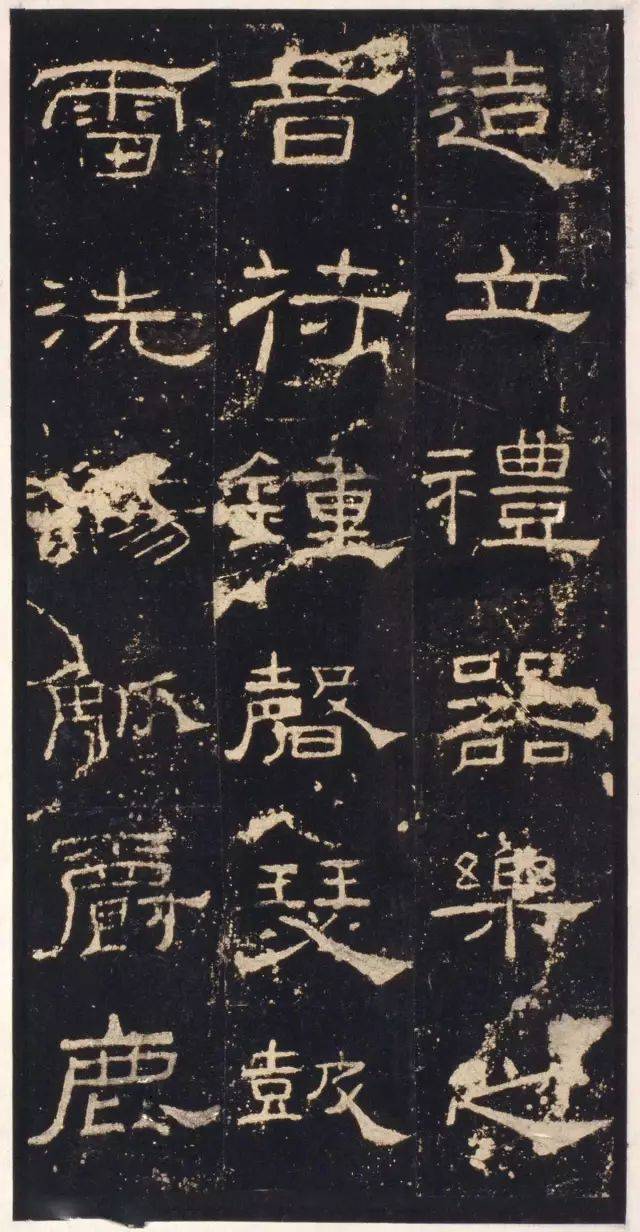 造立禮器樂之
音符鍾磬瑟皷
雷洗觴觚爵鹿